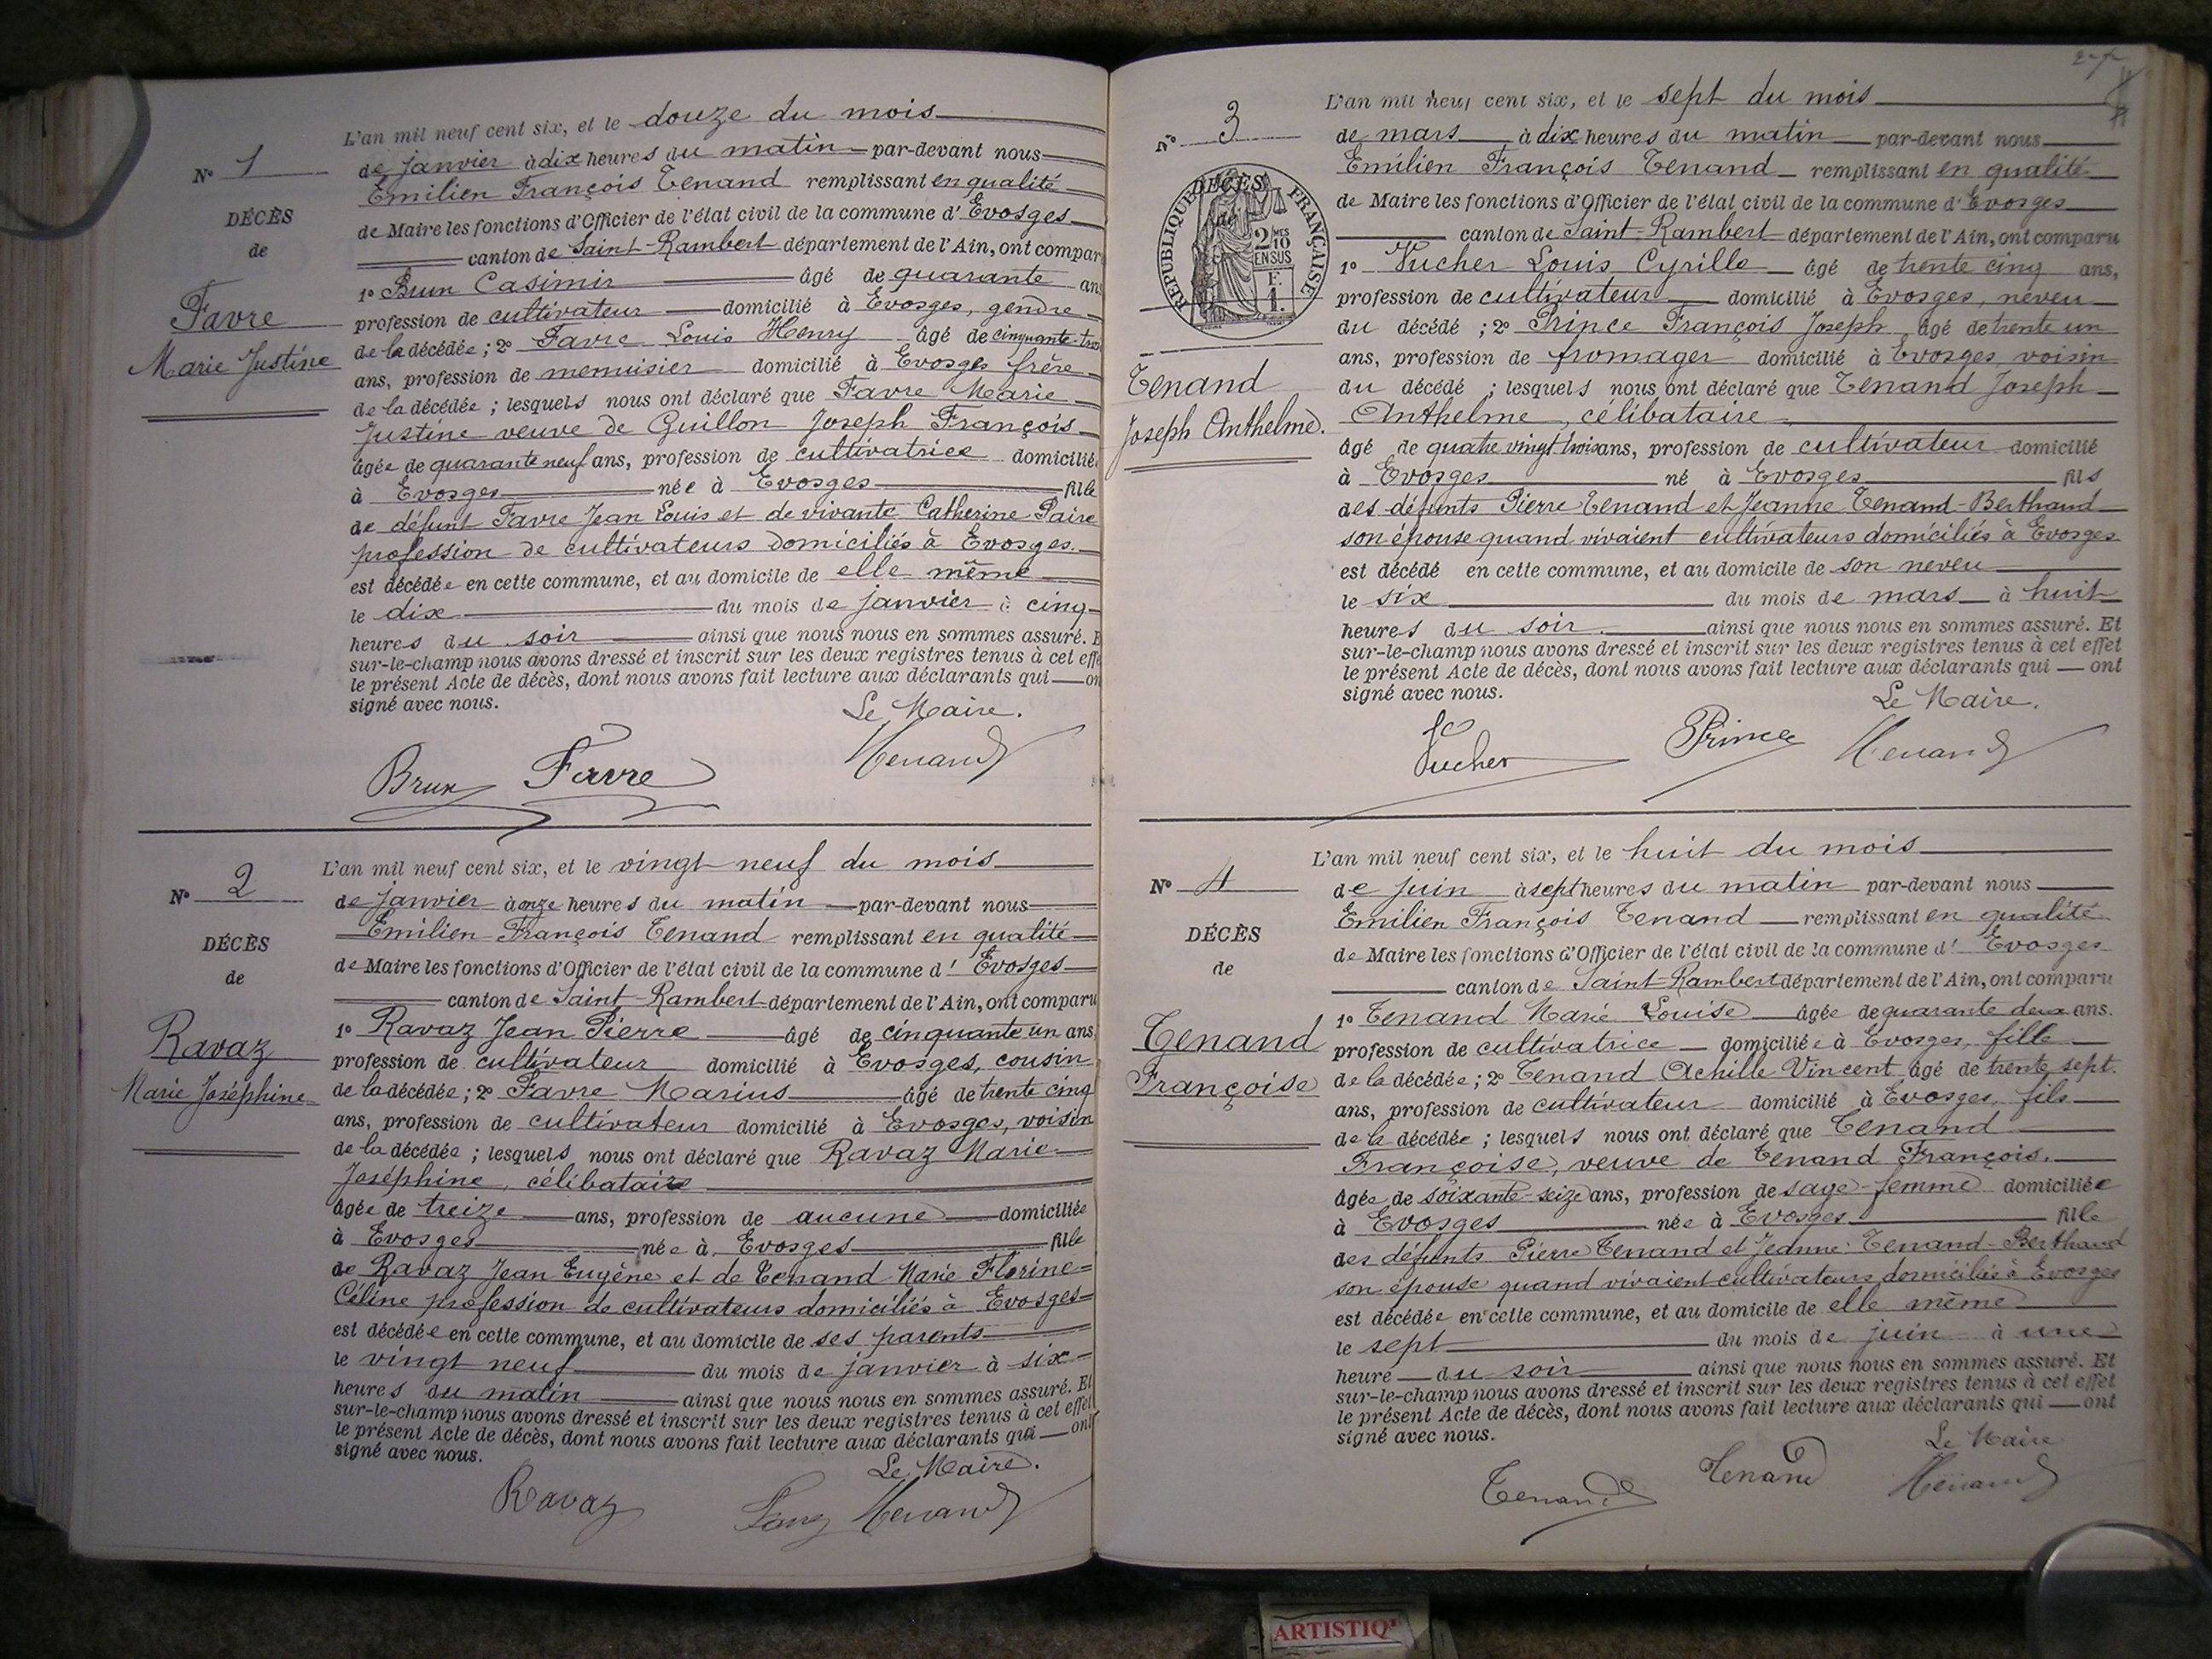 L'an mil neuf cent six, et le douze du mois
N° 1
de janvier à dix heures du matin par-devant nous
Emilien François Tenand remplissant en qualité
DÉCÈS
de Maire les fonctions d'Officier de l'état civil de la commune d'Evosges
de
canton de Saint-Rambert département de l'Ain, ont compar
1° Brun Casimir âgé de quarante ans
Favre
profession de cultivateur domicilié à Evosges, gendre
Marie Justine
de la décédée; 2° Favre Louis Henry âgé de cinquante-trois
ans, profession de menuisier domicilié à Evosges frère
de la décédée; lesquels nous ont déclaré que Favre Marie
Justine veuve de Guillon Joseph François
âgée de quarante neuf ans, profession de cultivatrice domicilié
à Evosges née à Evosges fille
de défunt Favre Jean Louis et de vivante Catherine Paire
profession de cultivateurs domiciliés à Evosges.
est décédée en cette commune, et au domicile de elle même
le dix du mois de janvier à cinq
heures du soir ainsi que nous nous en sommes assuré. E
sur-le-champ nous avons dressé et inscrit sur les deux registres tenus à cet effe
le présent Acte de décès, dont nous avons fait lecture aux déclarants qui on
signé avec nous.
Le Maire.
Brun Favre Tenand
L'an mil neuf cent six, et le vingt neuf du mois
N° 2
de janvier à onze heures du matin par-devant nous
Emilien François Tenand remplissant en qualité
DÉCÈS
de Maire les fonctions d'Officier de l'état civil de la commune d' Evosges
de
canton de Saint-Rambert département de l'Ain, ont comparu
1° Ravaz Jean Pierre âgé de cinquante un ans
Ravaz
profession de cultivateur domicilié à Evosges, cousin
Marie Joséphine
de la décédée; 2° Favre Marius âgé de trente cinq
ans, profession de cultivateur domicilié à Evosges, voisin
de la décédée; lesquels nous ont déclaré que Ravaz Marie
Joséphine, célibataire
âgée de treize ans, profession de aucune domiciliée
à Evosges née à Evosges fille
de Ravaz Jean Eugène et de Tenand Marie Florine
Céline profession de cultivateurs domiciliés à Evosges
est décédée en cette commune, et au domicile de ses parents
le vingt neuf du mois de janvier à six
heures du matin ainsi que nous nous en sommes assuré. Et
sur-le-champ nous avons dressé et inscrit sur les deux registres tenus à cet effet
le présent Acte de décès, dont nous avons fait lecture aux déclarants qui ont
signé avec nous.
Le Maire.
Ravaz Tenand
L'an mil neuf cent six, et le sept du mois
N° 3
de mars à dix heures du matin par-devant nous
Emilien François Tenand remplissant en qualité
DÉCÈS
de
RÉPUBLIQUE FRANÇAISE
2 MES
10
EN SUS
F.
1.
de Maire les fonctions d'Officier de l'état civil de la commune d'Evosges
canton de Saint-Rambert département de l'Ain, ont comparu
1° Vucher Louis Cyrille âgé de trente cinq ans,
profession de cultivateur domicilié à Evosges, neveu
du décédé; 2° Prince François Joseph âgé de trente un
ans, profession de fromager domicilié à Evosges voisin
Tenand
du décédé; lesquels nous ont déclaré que Tenand Joseph
Joseph Anthelme.
Anthelme, célibataire
âgé de quatre vingt trois ans, profession de cultivateur domicilié
à Evosges né à Evosges fils
des défunts Pierre Tenand et Jeanne Tenand-Berthaud
son épouse quand vivaient cultivateurs domiciliés à Evosges
est décédé en cette commune, et au domicile de son neveu
le six du mois de mars à huit
heures du soir. ainsi que nous nous en sommes assuré. Et
sur-le-champ nous avons dressé et inscrit sur les deux registres tenus à cet effet
le présent Acte de décès, dont nous avons fait lecture aux déclarants qui ont
signé avec nous.
Le Maire.
Vucher Prince Tenand
L'an mil neuf cent six, et le huit du mois
N° 4
de juin à sept heures du matin par-devant nous
Emilien François Tenand remplissant en qualité
DÉCÈS
de Maire les fonctions d'Officier de l'état civil de la commune d' Evosges
de
canton de Saint-Rambert département de l'Ain, ont comparu
1° Tenand Marie Louise âgée de quarante deux ans.
Tenand
profession de cultivatrice domiciliée à Evosges, fille
Françoise
de la décédée; 2° Tenand Achille Vincent âgé de trente sept.
ans, profession de cultivateur domicilié à Evosges, fils
de la décédée; lesquels nous ont déclaré que Tenand
Françoise, veuve de Tenand François.
âgée de soixante-seize ans, profession de sage-femme domiciliée
à Evosges née à Evosges fille
des défunts Pierre Tenand et Jeanne Tenand-Berthaud
son épouse quand vivaient cultivateurs domiciliés à Evosges
est décédée en cette commune, et au domicile de elle même
le sept du mois de juin à une
heure du soir ainsi que nous nous en sommes assuré. Et
sur-le-champ nous avons dressé et inscrit sur les deux registres tenus à cet effet
le présent Acte de décès, dont nous avons fait lecture aux déclarants qui ont
signé avec nous.
Le Maire
Tenand Tenand Tenand
ARTISTIQ